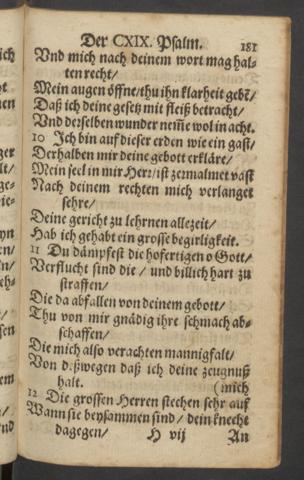 Der CXIX. Psalm. 181
Vnd mich nach deinem wort mag hal-
ten recht/
Mein augen öffne/ thu ihn klarheit gebē/
Daß ich deine gesetz mit fleiß betracht/
Vnd derselben wunder nem̄e wol in acht.
10 Ich bin auf dieser erden wie ein gast/
Derhalben mir deine gebott erkläre/
Mein seel in mir Herr/ ist zermalmet vast
Nach deinem rechten mich verlanget
sehre/
Deine gericht zu lehrnen allezeit/
Hab ich gehabt ein grosse begirligkeit.
11 Du dämpfest die hofertigen o Gott/
Verflucht sind die/ und billich hart zu
straffen/
Die da abfallen von deinem gebott/
Thu von mir gnädig ihre schmach ab-
schaffen/
Die mich also verachten mannigfalt/
Von deßwegen daß ich deine zeugnuß
halt. (mich
12 Die grossen Herren stechen sehr auf
Wann sie beysammen sind/ dein knecht
dagegen/ H vij An